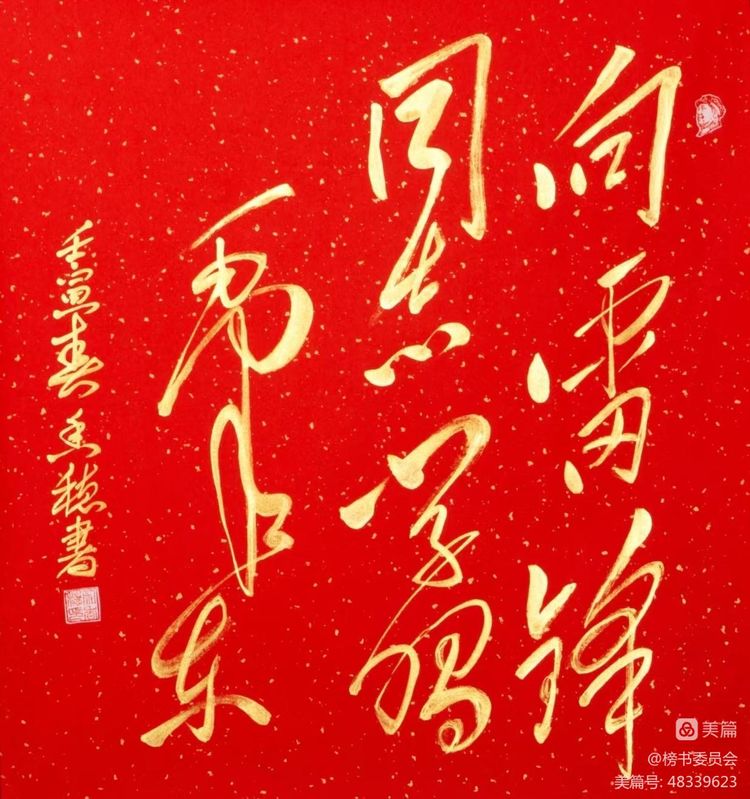 向雷锋
同志学习
毛泽东
壬寅春 香穗书
美篇
@榜书委员会
美篇号: 48339623